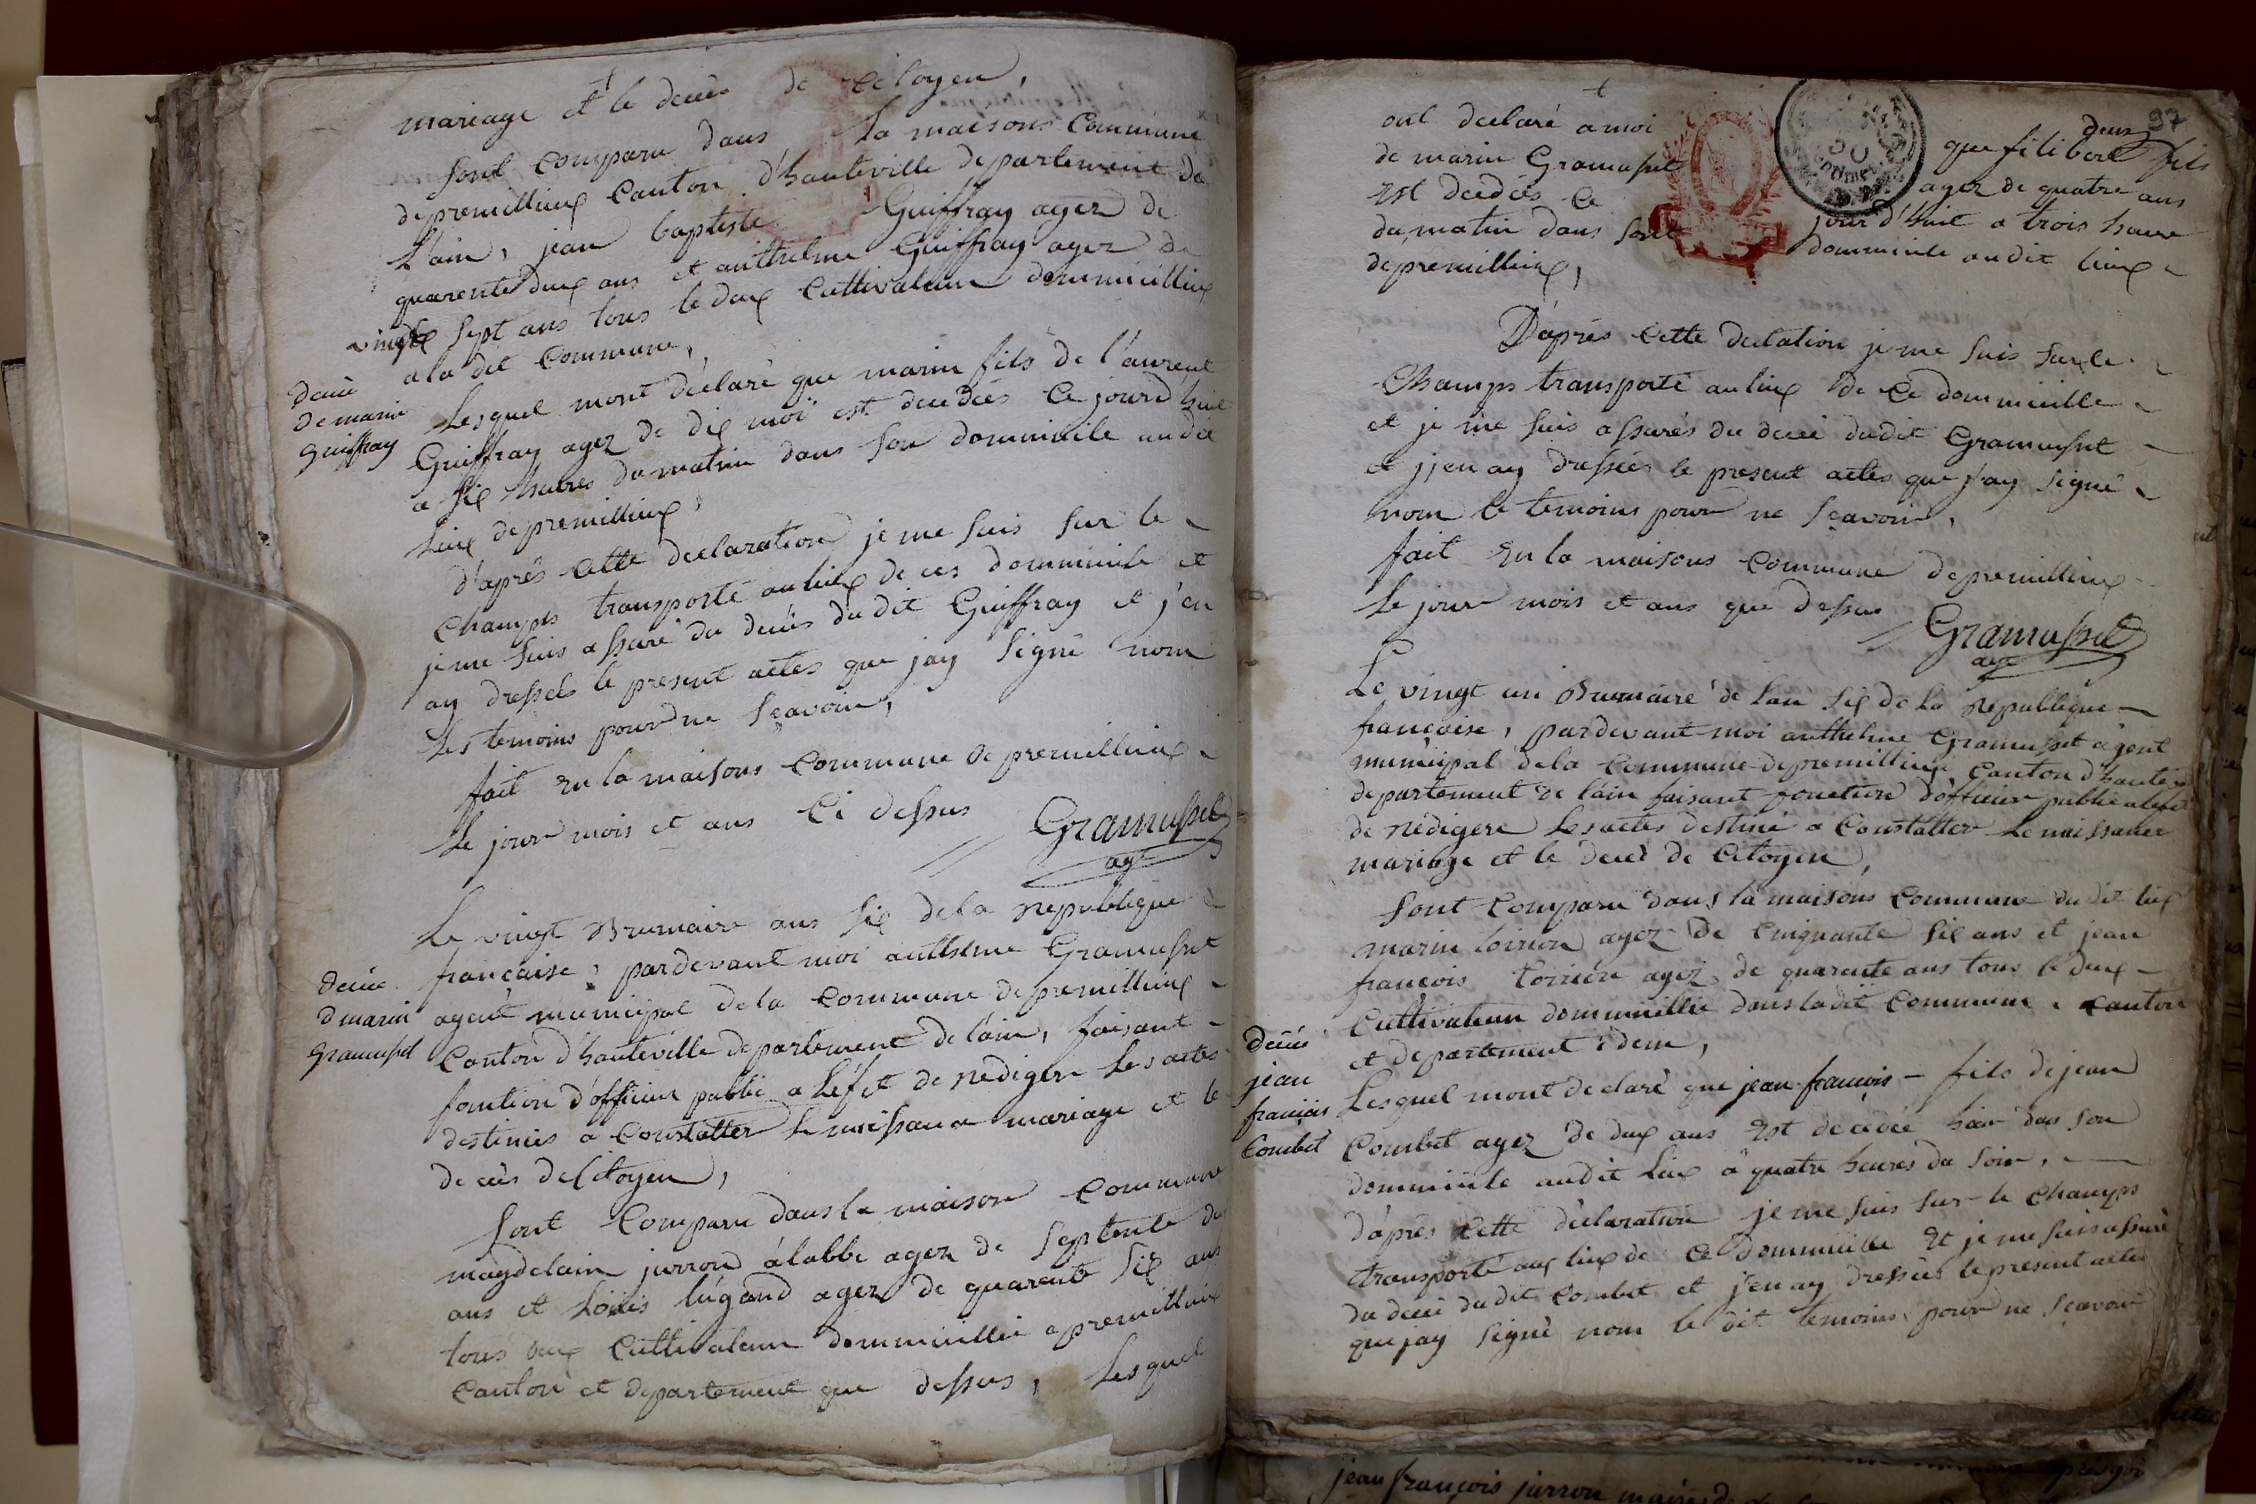 mariage et le deces de Citoyen,
sont comparu dans la maisons commune
de premillieux Canton d'hauteville departement de
L'ain, jean baptiste Guiffray agez de
quarente deux ans et anthelme Guiffray agez de
vingte sept ans tous le deux Cultivateur dommicillieux
a la dit Commune,
decée
de marin
Guiffray
Lesquel mont déclaré que marin fils de l'aurent
Guiffray agez de dix moi est decedées Ce jourd'huit
a six heures du matin dans son dommicile au dit
Lieux de premillieux,
d'aprés cette declaration je me suis sur le
Champs transporté au lieux de ces dommicile et
je me suis assuré du decés du dit Guiffray et j'en
ay dressées le present actes que jay signé nom
Les temoins pour ne sçavoir,
fait en la maisons Commune de premillieux
Le jour mois et ans Ci dessus
Gramusset
agt
Le vingt Brumaire ans six de la republique
decée
d marin
Gramusset
française, pardevant moi anthelme Gramusset
agent municipal de la Commune de premillieux
Canton d'hauteville departement de l'ain, faisant
fonction d'officier public a l'éfet de rediger les actes
destinées a Constatter le naissance mariage et le
deces de Citoyen,
sont Comparu dans la maison Commune
magdelain jurrond à labbe agez de septente deux
ans et Loüis lugand agez de quarante six ans
tous deux Cultivateur dommicillié a premillieux
Canton et departement que dessus, Lesquel
97
ont declaré a moi que filibert deux fils
de marin Gramusset agez de quatre ans
est decedés ce jour d'huit a trois heure
du matin dans sont dommicile au dit lieux
de premillieux,
D'aprés Cette declation je me suis sur le
Champs transporté au lieux de Ce dommicille
et je me suis assurés du decé du dit Gramusset
et j'en ay dressées le present actes que j'ay signé
nom le temoins pour ne sçavoir,
fait en la maisons Commune de premillieux
Le jour mois et ans que dessus
Gramusset
agt
Le vingt un Brumaire de l'an six de la republique
française, pardevant moi anthelme Gramusset agent
municipal de la Commune de premillieux Canton d'hautev
departement de l'ain faisant fonction d'officier public a l'efet
de redigere les actes destiné a Constatter le naissance
mariage et le decés de Citoyen,
sont Comparu dans la maisons Commune du dit lieux
marin toirion agez de Cinquante six ans et jean
francois toirion agez de quarente ans tous le deux
Cultivateur dommicillié dans la dit Commune, Canton
et departement idem,
decée
jean
français
Combet
Lesquel mont declaré que jean françois fils de jean
Combet agez de deux ans est decedée hier dans son
dommicile au dit Lieux a quatre heures du soir,
d'aprés cette déclaration je me suis sur le Champs
transporté aux lieux de Ce dommicille et je me suis assuré
du decé du dit Combet et j'en ay dressées le present actes
que jay signé nom le dit temoins pour ne sçavoir
jean françois jurron